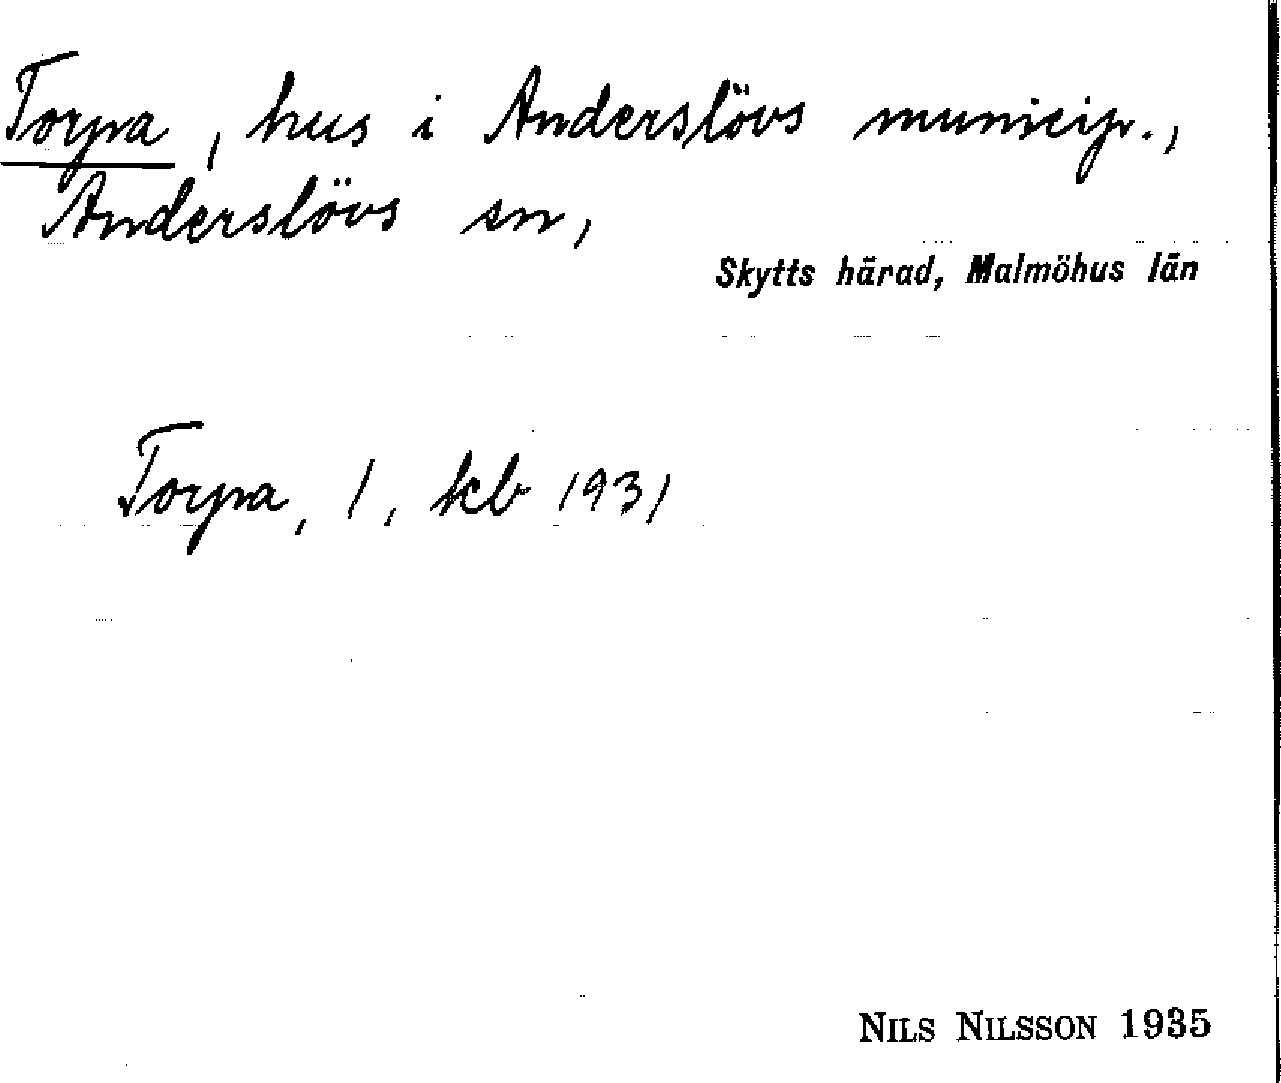 Torpa, hus i Anderslövs municip.,
Anderslövs sn,
Skytts härad, Malmöhus län
Torpa, 1, kb 1931
NILS NILSSON 1935